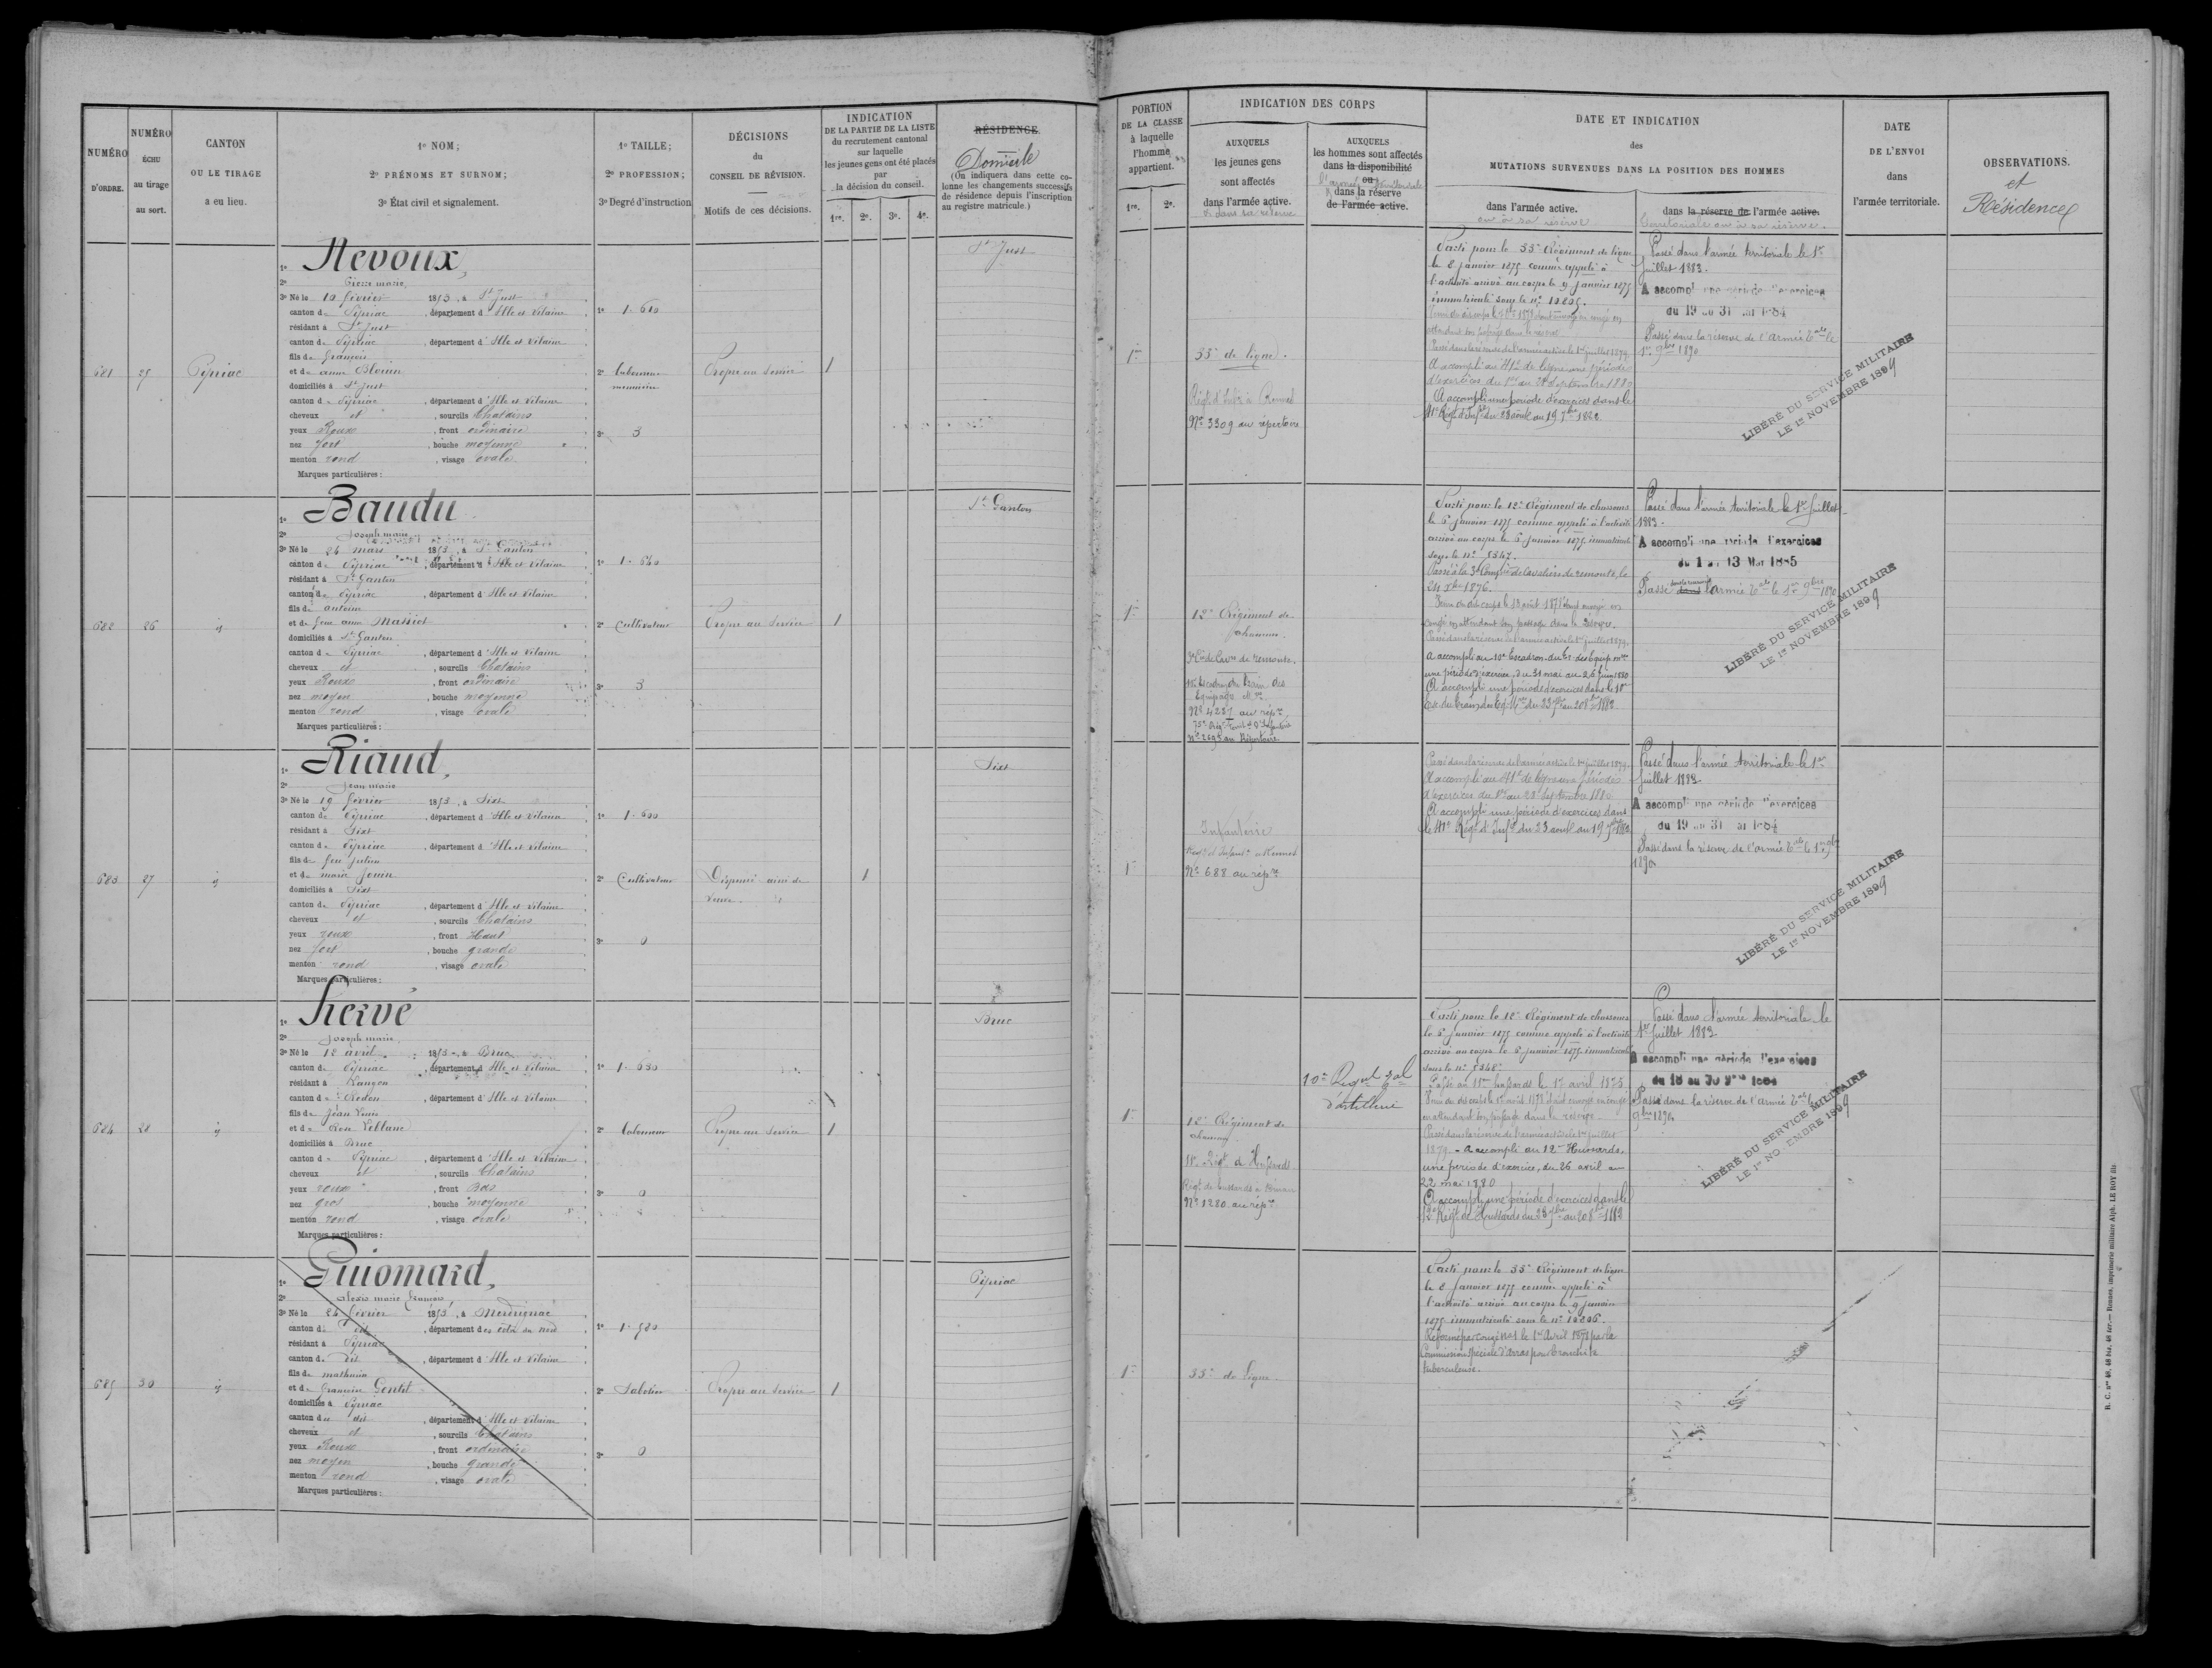 NUMÉRO D'ORDRE.
NUMÉRO ÉCHU au tirage au sort.
CANTON OU LE TIRAGE a eu lieu.
1º NOM;
2º PRÉNOMS ET SURNOM;
3º État civil et signalement.
1º TAILLE;
2º PROFESSION;
3º Degré d'instruction
DÉCISIONS
du
CONSEIL DE RÉVISION.
Motifs de ces décisions.
INDICATION
DE LA PARTIE DE LA LISTE
du recrutement cantonal
sur laquelle
les jeunes gens ont été placés
par
la décision du conseil.
1re. 2e. 3e. 4e.
RÉSIDENCE.
Domicile
(On indiquera dans cette co-
lonne les changements successifs
de résidence depuis l'inscription
au registre matricule.)
PORTION
DE LA CLASSE
à laquelle
l'homme
appartient.
1re. 2e.
INDICATION DES CORPS
AUXQUELS
les jeunes gens
sont affectés
dans l'armée active.
AUXQUELS
les hommes sont affectés
dans la disponibilité
ou
dans la réserve
de l'armée active.
DATE ET INDICATION
des
MUTATIONS SURVENUES DANS LA POSITION DES HOMMES
dans l'armée active.
ou à sa réserve
dans la réserve de l'armée active.
territoriale ou à sa réserve.
DATE
DE L'ENVOI
dans
l'armée territoriale.
OBSERVATIONS.
et
Résidences
681 25 Pipriac
1º Nevoux,
2º Pierre marie,
3º Né le 10 février 1853, à St Just
canton de Pipriac, département d'Ille et Vilaine
résidant à St Just
canton de Pipriac, département d'Ille et Vilaine
fils de François
et de anne Blouin
domiciliés à St Just
canton de Pipriac, département d'Ille et Vilaine
cheveux et, sourcils Chatains
yeux Roux, front ordinaire
nez fort, bouche moyenne
menton rond, visage ovale
Marques particulières :
1º 1.610
2º laboureur
3º 3
Propre au service
1
St Just
1re
33e de ligne.
Nº 3309 au répertoire
Parti pour le 33e Régiment de ligne
le 8 janvier 1875 comme appelé à
l'activité arrivé au corps le 9 janvier 1875
immatriculé sous le nº 10805.
Passé dans la réserve de l'armée active le 1er juillet 1879.
A accompli au 41e de ligne une période
d'exercices du 1er au 28 septembre 1880
A accompli une période d'exercices dans le
41e Régt d'Infie du 23 août au 19 7bre 1882.
Passé dans l'armée territoriale le 1er
juillet 1883.
A accompli une période d'exercices
du 19 au 31 mai 1884
Passé dans la réserve de l'armée tale le
1er 9bre 1890
LIBÉRÉ DU SERVICE MILITAIRE
LE 1er NOVEMBRE 1899
682 26 ij
1º Baudu
2º Joseph marie
3º Né le 26 mars 1853, à St Ganton
canton de Pipriac, département d'Ille et Vilaine
résidant à St Ganton
canton de Pipriac, département d'Ille et Vilaine
fils de antoine
et de feue anne Massiot
domiciliés à St Ganton
canton de Pipriac, département d'Ille et Vilaine
cheveux et, sourcils Chatains
yeux Roux, front ordinaire
nez moyen, bouche moyenne
menton rond, visage ovale
Marques particulières :
1º 1.640
2º Cultivateur
3º 3
Propre au service
1
St Ganton
1re
12e Régiment de
chasseurs.
3e Cie de Cavrs de remonte.
Nº 4237 au répre
Nº 2695 au Répertoire
Parti pour le 12e Régiment de chasseurs
le 5 janvier 1875 comme appelé à l'activité
arrivé au corps le 6 janvier 1875 immatriculé
sous le nº 5347.
Passé à la 3e Compie de Cavaliers de remonte, le
24 Xbre 1876.
congé en attendant son passage dans la réserve.
Passé dans la réserve de l'armée active le 1er juillet 1879.
A accompli au 10e Escadron du tr. des Equip. mres
une période d'exercices, du 31 mai au 26 juin 1880
A accompli une période d'exercices dans le 10e
Esc. du train des Eq. Mres du 23 7bre au 20 8bre 1882
Passé dans l'armée territoriale le 1er Juillet
1883.
A accompli une période d'exercices
du 1 au 13 Mai 1885
Passé dans la réserve de l'armée tale le 1er 9bre 1890
LIBÉRÉ DU SERVICE MILITAIRE
LE 1er NOVEMBRE 1899
683 27 ij
1º Riaud,
2º Jean marie
3º Né le 19 février 1853, à Sixt
canton de Pipriac, département d'Ille et Vilaine
résidant à Sixt
canton de Pipriac, département d'Ille et Vilaine
fils de feu julien
et de marie Jouin
domiciliés à Sixt
canton de Pipriac, département d'Ille et Vilaine
cheveux et, sourcils Chatains
yeux roux, front Haut
nez fort, bouche grande
menton rond, visage ovale
Marques particulières :
1º 1.600
2º Cultivateur
3º 0
Dispensé ainé de
veuve
1
Sixt
1re
Infanterie
Nº 688 au répre
Passé dans la réserve de l'armée active le 1er juillet 1879.
A accompli au 41e de ligne une période
d'exercices du 1er au 28 septembre 1880
A accompli une période d'exercices dans
le 41e Régt d'Infie du 23 août au 19 7bre 1882
Passé dans l'armée territoriale le 1er
juillet 1883.
A accompli une période d'exercices
du 19 au 31 mai 1884
Passé dans la réserve de l'armée tale le 1er 9bre
1890
LIBÉRÉ DU SERVICE MILITAIRE
LE 1er NOVEMBRE 1899
684 28 ij
1º Hervé
2º Joseph marie,
3º Né le 12 avril 1853, à Bruc
canton de Pipriac, département d'Ille et Vilaine
résidant à Langon
canton de Redon, département d'Ille et Vilaine
fils de Jean Louis
et de Rose Leblanc
domiciliés à Bruc
canton de Pipriac, département d'Ille et Vilaine
cheveux et, sourcils Chatains
yeux roux, front Bas
nez gros, bouche moyenne
menton rond, visage ovale
Marques particulières :
1º 1.630
2º laboureur
3º 0
Propre au service
1
Bruc
1re
12e Régiment de
chasseurs
11e Régt de Hussards
Régt de hussards à Dinan
Nº 1280 au répre
10e Régt tal
d'artillerie
Parti pour le 12e Régiment de chasseurs
le 5 janvier 1875 comme appelé à l'activité
arrivé au corps le 6 janvier 1875 immatriculé
sous le nº 5348.
Passé au 11me hussards le 17 avril 1875
en attendant son passage dans la réserve.
Passé dans la réserve de l'armée active le 1er juillet
1879 - A accompli au 12me Hussards,
une période d'exercices, du 26 avril au
22 mai 1880
A accompli une période d'exercices dans le
12e Régt de Hussards du 23 7bre au 20 8bre 1882
Passé dans l'armée territoriale le
1er Juillet 1883
A accompli une période d'exercices
du 18 au 30 9bre 1884
Passé dans la réserve de l'armée tale le
9bre 1890
LIBÉRÉ DU SERVICE MILITAIRE
LE 1er NOVEMBRE 1899
685 30 ij
1º Guiomard,
2º alexis marie françois
3º Né le 26 février 1853, à Merdrignac
canton du dit, département des côtes du nord
résidant à Pipriac
canton du dit, département d'Ille et Vilaine
fils de mathurin
et de françoise Gentil
domiciliés à Pipriac
canton du dit, département d'Ille et Vilaine
cheveux et, sourcils Chatains
yeux Roux, front ordinaire
nez moyen, bouche grande
menton rond, visage ovale
Marques particulières :
1º 1.580
2º Sabotier
3º 0
Propre au service
1
Pipriac
1re
33e de ligne
Parti pour le 33e Régiment de ligne
le 8 janvier 1875 comme appelé à
l'activité arrivé au corps le 9 janvier
1875 immatriculé sous le nº 10806.
Réformé par congé nº 1 le 1er Avril 1878 par la
Commission spéciale d'Arras pour bronchite
tuberculeuse.
R. C. nos 48, 48 bis, 48 ter. — Rennes, imprimerie militaire Alph. LE ROY fils